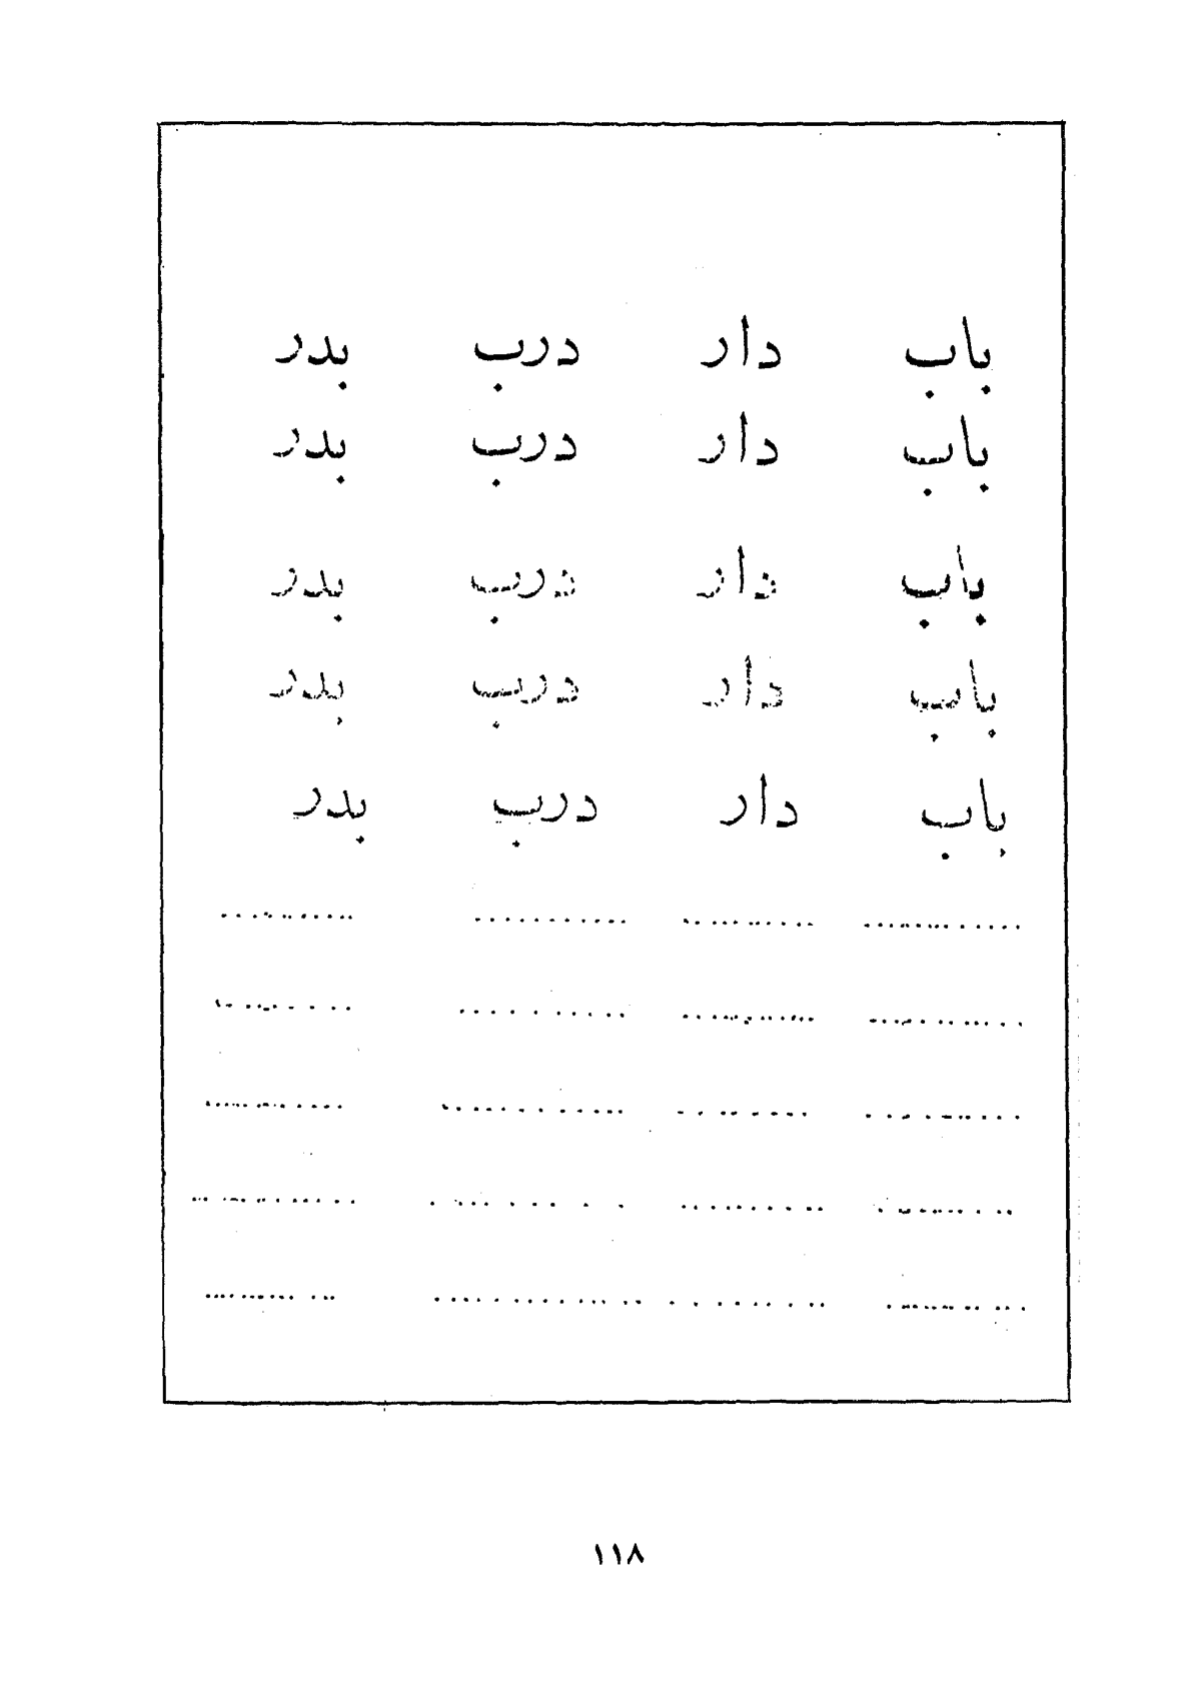 باب دار درب بدر
باب دار درب بدر
باب دار درب بدر
باب دار درب بدر
باب دار درب بدر
............ .......... ........... ...........
............ .......... ........... ...........
............ .......... ........... ...........
............ .......... ........... ...........
............ .......... ........... ...........
١١٨